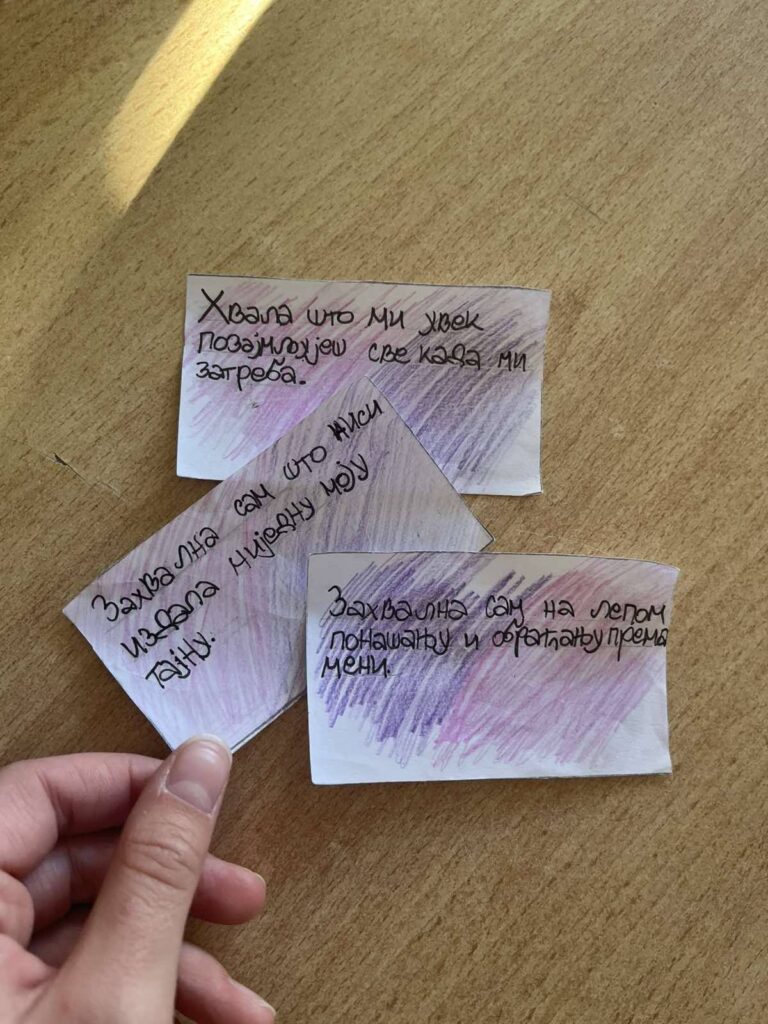 Хвала што ми увек
позајмљујеш све када ми
затреба.
Захвална сам што ниси
издала ниједну моју
тајну.
Захвална сам на лепом
понашању и обраћању према
мени.